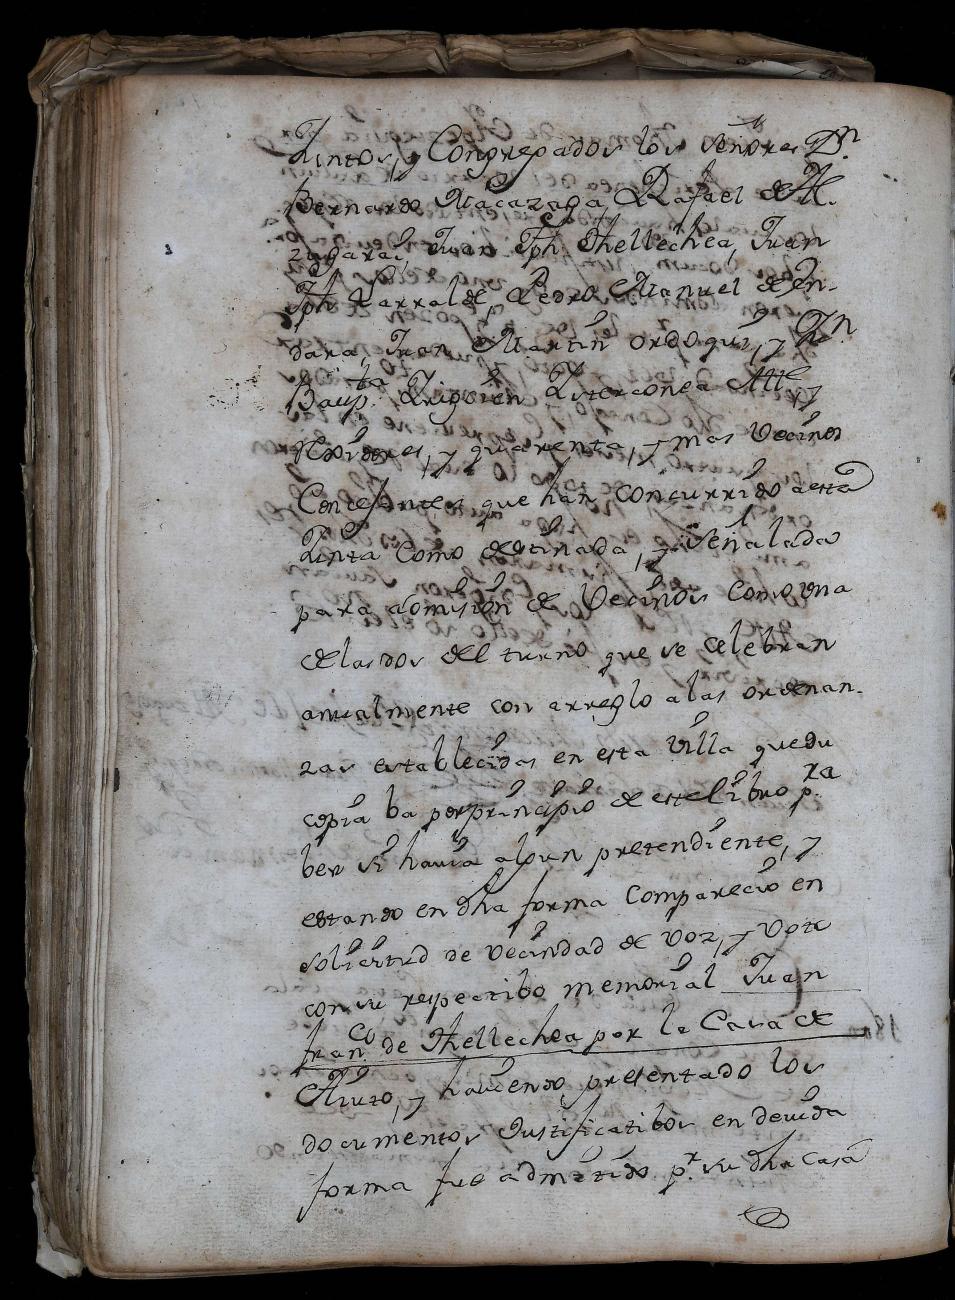 Juntos, y Congregados los señores Dn.
Bernardo Macazaga, Rafael de Al.
zugarai, Juan Jph. Thellechea, Juan
Jph. Larralde, Pedro Manuel de En-
dara, Juan Martin Ordoqui, y Jn
Baupta. Irigoien
rexidores, y quarenta, y mas Vecinos
Concejantes que han concurrido a esta
Junta como destinada, y señalada
para admision de Vecinos como una
de las dos del turno que se celebran
anualmente con arreglo a las ordenan-
zas establecidas en esta Villa que su
copia ba por principio de este libro pra.
ber si havia algun pretendiente, y
estando en dha forma comparecio en
solicitud de vecindad de voz, y voto
con su respectibo memorial Juan
Franco. de Thellechea por la Casa de
y haviendo presentado los
documentos Justificatibos en devida
forma fue admitido pr. su dha casa